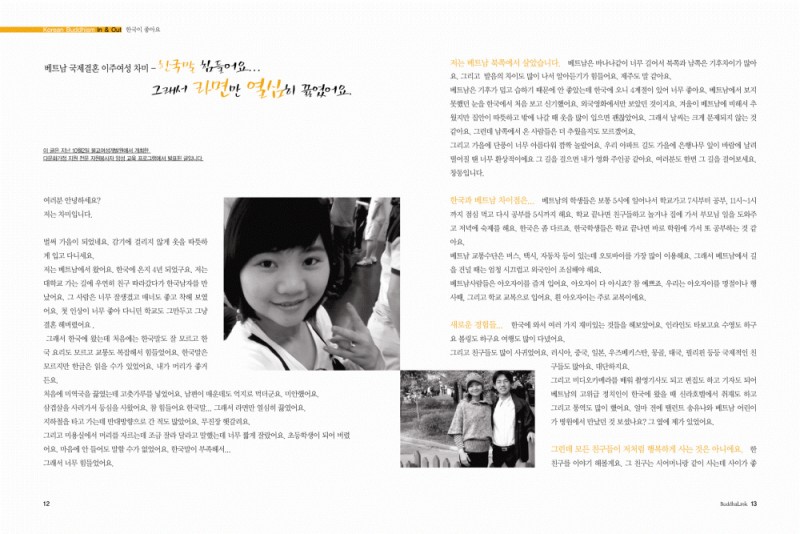 Korean Buddhism In & Out 한국이 좋아요
베트남 국제결혼 이주여성 차미 – 한국말 힘들어요...
그래서 라면만 열심히 끓였어요
이 글은 지난 10월2일 불교여성개발원에서 개최한
다문화가정 지원 전문 자원봉사자 양성 교육 프로그램에서 발표된 글입니다.
여러분 안녕하세요?
저는 차미입니다.
벌써 가을이 되었네요. 감기에 걸리지 않게 옷을 따뜻하
게 입고 다니세요.
저는 베트남에서 왔어요. 한국에 온지 4년 되었구요. 저는
대학교 가는 길에 우연히 친구 따라갔다가 한국남자를 만
났어요. 그 사람은 너무 잘생겼고 매너도 좋고 착해 보였
어요. 첫 인상이 너무 좋아 다니던 학교도 그만두고 그냥
결혼 해버렸어요.
그래서 한국에 왔는데 처음에는 한국말도 잘 모르고 한
국 요리도 모르고 교통도 복잡해서 힘들었어요. 한국말은
모르지만 한글은 읽을 수가 있었어요. 내가 머리가 좋거
든요.
처음에 미역국을 끓였는데 고춧가루를 넣었어요. 남편이 매운데도 억지로 먹더군요. 미안했어요.
삼겹살을 사러가서 등심을 사왔어요. 참 힘들어요 한국말... 그래서 라면만 열심히 끓였어요.
지하철을 타고 가는데 반대방향으로 간 적도 많았어요. 무진장 헷갈려요.
그리고 미용실에서 머리를 자르는데 조금 잘라 달라고 말했는데 너무 짧게 잘랐어요. 초등학생이 되어 버렸
어요. 마음에 안 들어도 말할 수가 없었어요. 한국말이 부족해서...
그래서 너무 힘들었어요.
12
저는 베트남 북쪽에서 살았습니다. 베트남은 바나나같이 너무 길어서 북쪽과 남쪽은 기후차이가 많아
요. 그리고 말씀의 차이도 많이 나서 알아듣기가 힘들어요. 제주도 말 같아요.
베트남은 기후가 덥고 습하기 때문에 안 좋았는데 한국에 오니 4계절이 있어 너무 좋아요. 베트남에서 보지
못했던 눈을 한국에서 처음 보고 신기했어요. 외국영화에서만 보았던 것이지요. 겨울이 베트남에 비해서 추
웠지만 집안이 따뜻하고 밖에 나갈 때 옷을 많이 입으면 괜찮았어요. 그래서 날씨는 크게 문제되지 않는 것
같아요. 그런데 남쪽에서 온 사람들은 더 추웠을지도 모르겠어요.
그리고 가을에 단풍이 너무 아름다워 깜짝 놀랐어요. 우리 아파트 길도 가을에 은행나무 잎이 바람에 날려
떨어질 땐 너무 환상적이에요 그 길을 걸으면 내가 영화 주인공 같아요. 여러분도 한번 그 길을 걸어보세요.
정말입니다.
한국과 베트남 차이점은... 베트남의 학생들은 보통 5시에 일어나서 학교가고 7시부터 공부, 11시~1시
까지 점심 먹고 다시 공부를 5시까지 해요. 학교 끝나면 친구들하고 놀거나 집에 가서 부모님 일을 도와주
고 저녁에 숙제를 해요. 한국은 좀 다르죠. 한국학생들은 학교 끝나면 바로 학원에 가서 또 공부하는 것 같
아요.
베트남 교통수단은 버스, 택시, 자동차 등이 있는데 오토바이를 가장 많이 이용해요. 그래서 베트남에서 길
을 건널 때는 엄청 시끄럽고 외국인이 조심해야 해요.
베트남사람들은 아오자이를 즐겨 입어요. 아오자이 다 아시죠? 참 예쁘죠. 우리는 아오자이를 명절이나 행
사때, 그리고 학교 교복으로 입어요. 흰 아오자이는 주로 교복이에요.
새로운 경험들... 한국에 와서 여러 가지 재미있는 것들을 해보았어요. 인라인도 타보고요 수영도 하구
요 볼링도 하구요 여행도 많이 다녔어요.
그리고 친구들도 많이 사귀었어요. 러시아, 중국, 일본, 우즈베키스탄, 몽골, 태국, 필리핀 등등 국제적인 친
구들도 많아요. 대단하지요.
그리고 비디오카메라를 배워 촬영기사도 되고 편집도 하고 기자도 되어
베트남의 고위급 정치인이 한국에 왔을 때 신라호텔에서 취재도 하고
그리고 통역도 많이 했어요. 얼마 전에 탤런트 송윤나와 베트남 어린이
가 병원에서 만났던 것 보셨나요? 그 옆에 제가 있었어요.
그런데 모든 친구들이 저처럼 행복하게 사는 것은 아니에요. 한
친구를 이야기 해볼게요. 그 친구는 시어머니랑 같이 사는데 사이가 좋
BuddhaLink 13